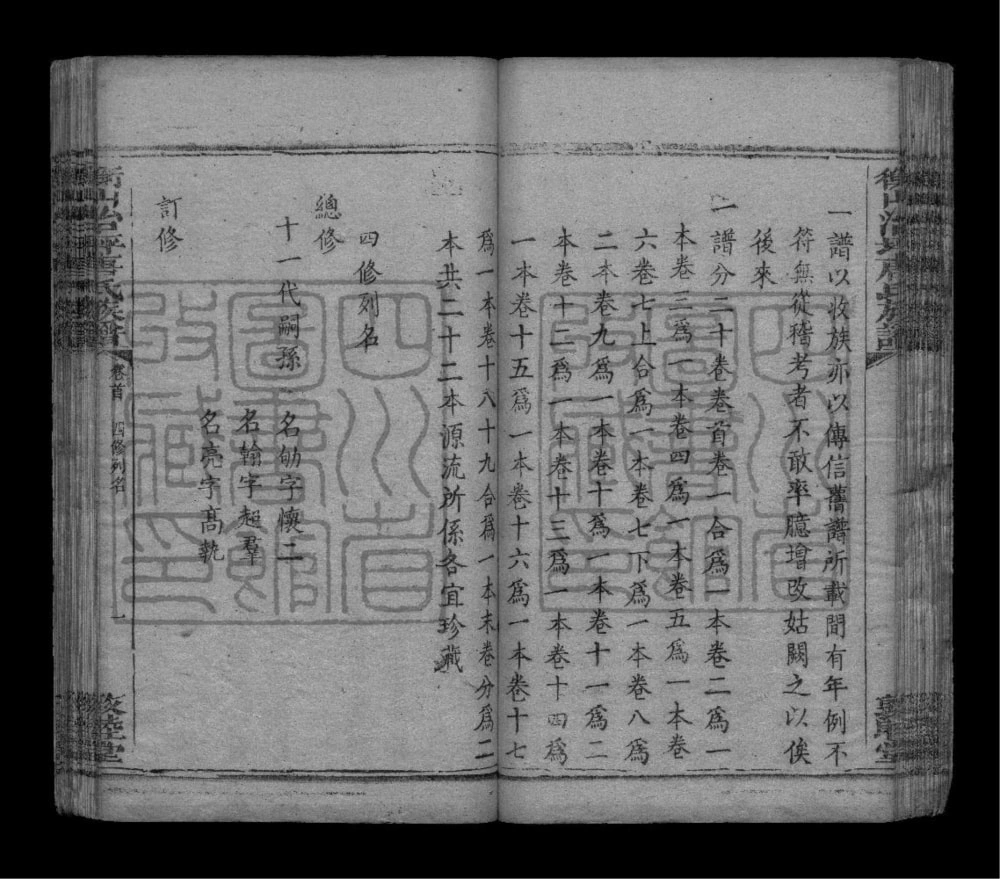 一譜以收族亦以傳信舊譜所載間有年例不
符無從稽考者不敢率臆增改姑闕之以俟
後來
一譜分二十卷卷首卷一合爲一本卷二爲一
本卷三爲一本卷四爲一本卷五爲一本卷
六卷七上合爲一本卷七下爲一本卷八爲
二本卷九爲一本卷十爲一本卷十一爲二
本卷十二爲一本卷十三爲一本卷十四爲
一本卷十五爲一本卷十六爲一本卷十七
爲一本卷十八十九合爲一本末卷分爲二
本共二十二本源流所係各宜珍藏
四修列名
總修
十一代嗣孫 名劬字懷二
名翰字超羣
名亮字髙㙯
訂修
族譜
卷首
四修列名
一
敦睦堂
四川省圖書館收藏印
四川省圖書館